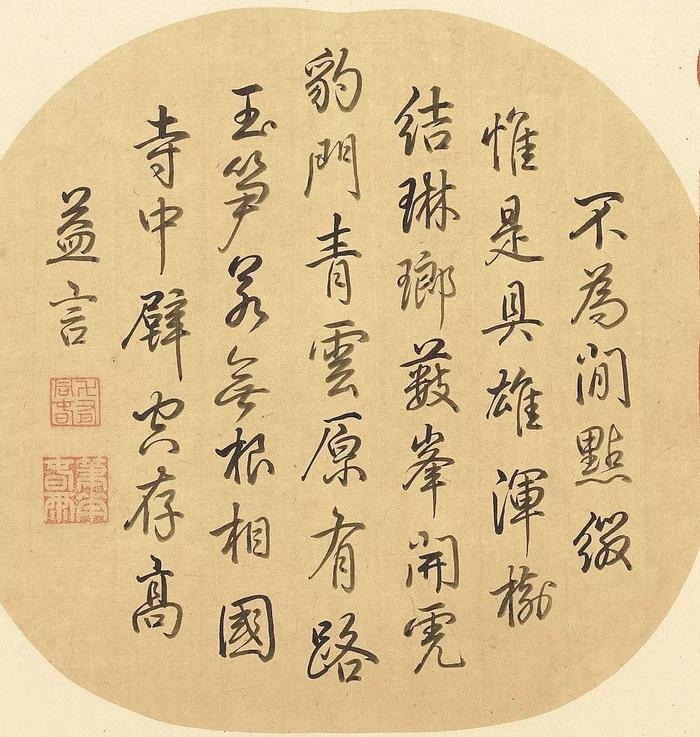 不為閒點綴
惟是具雄渾樹
結琳瑯薮峯開霓
豹門青雲原有路
玉笋若無根相國
寺中壁空存高
益言